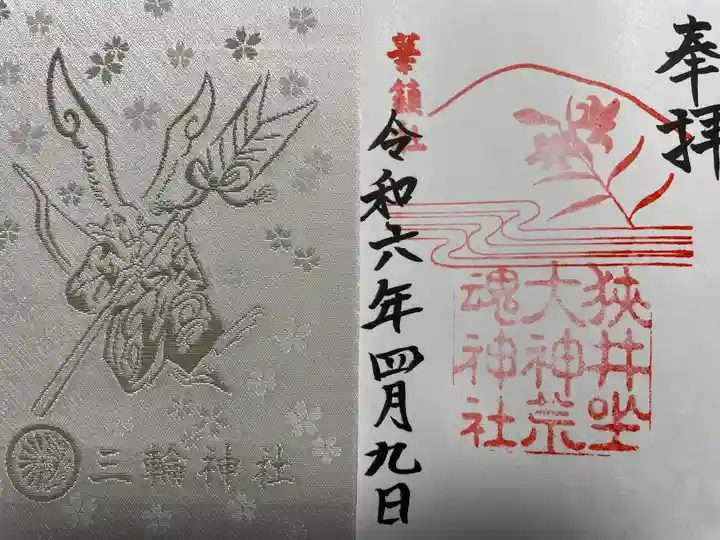 奉拝
狭井坐
大神荒
魂神社
華鎮社
令和六年四月九日
三輪神社